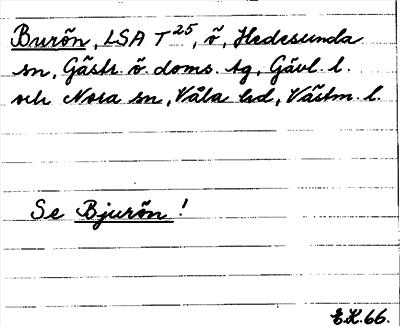 Burön, LSA T 25, ö, Hedesunda
sn, Gästr. ö. doms. tg, Gävl. l.
och Nora sn, Våla hd, Västm. l.
Se Bjurön!
E.K. 66.